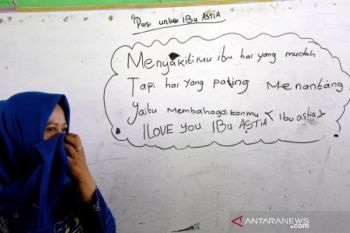 Puisi untuk IBu ASTIA
Menyakitimu ibu hal yang mudah
Tapi hal Yang paling Menantang
yaitu Membahagiakanmu < Ibu astia >
I LOVE YOU IBU ASTIA
ANTARANEWS.com